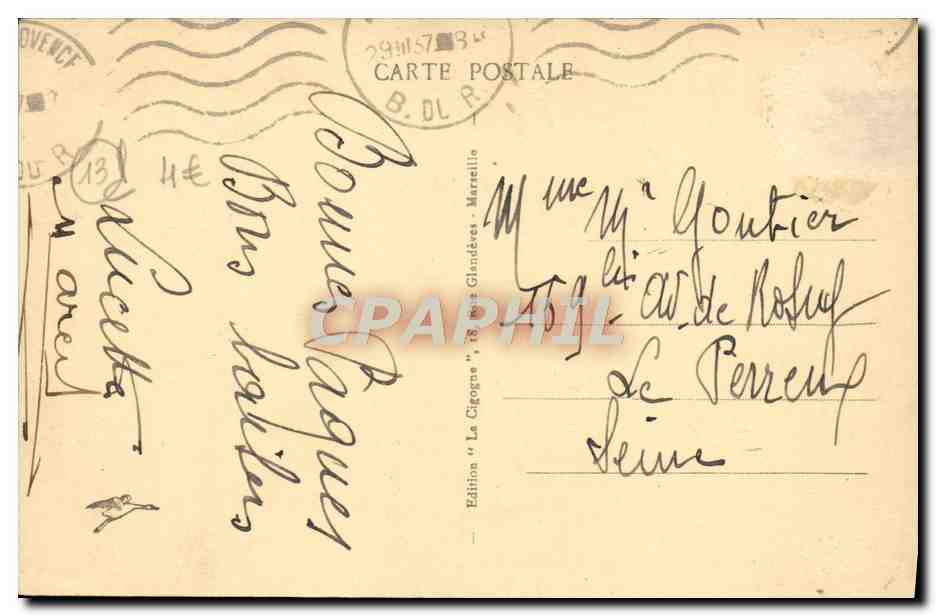 OVENCE
29 III 37
CARTE POSTALE
B. DU R.
DU R
13
4€
Bonnes Pâques
Bons baisers
Lucette
Marcel
Edition " La Cigogne ", 18, Rue Glandèves - Marseille
Mme Mr Goubier
159 bis av. de Rosny
Le Perreux
Seine
CPAPHIL